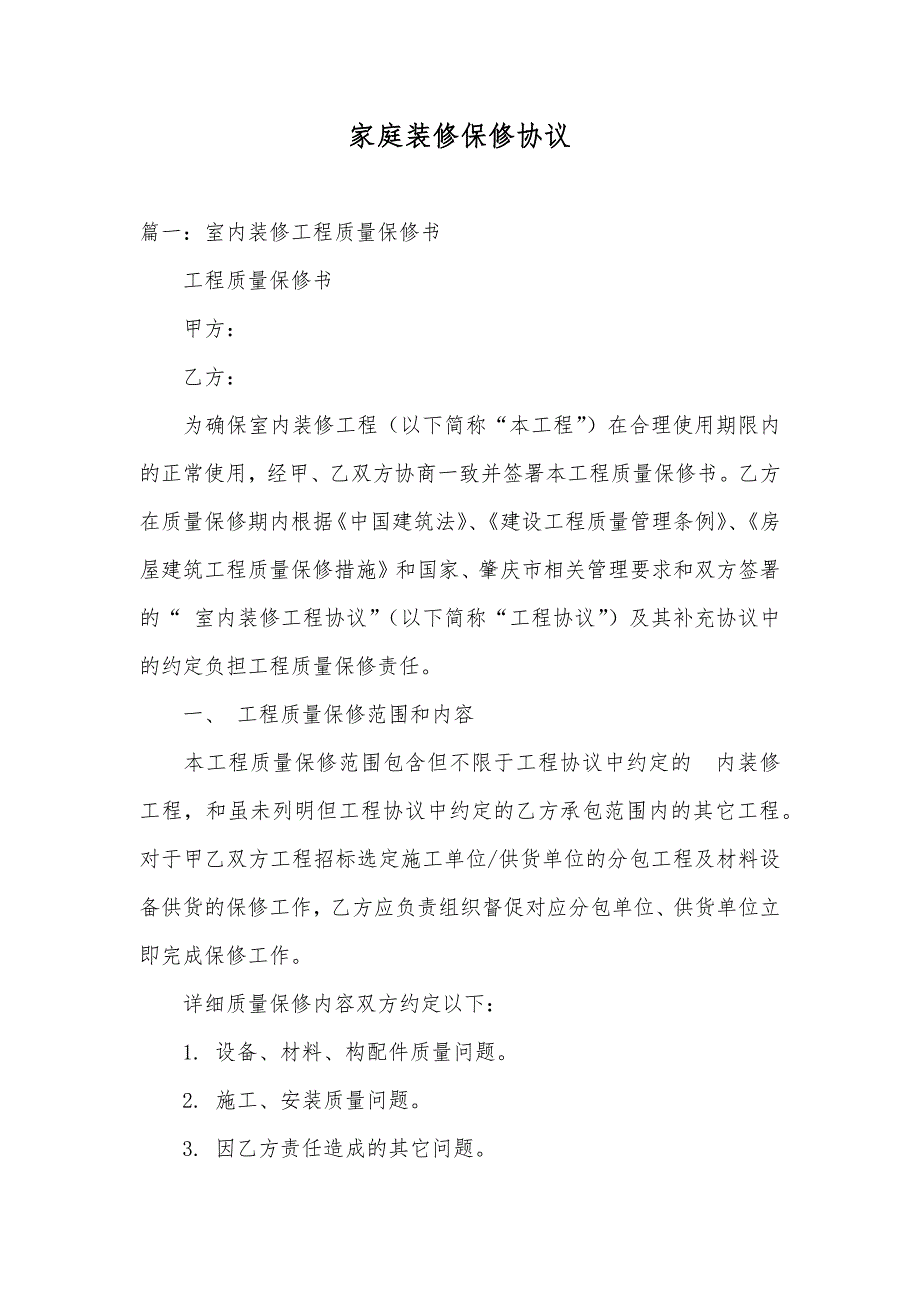 家庭装修保修协议
篇一：室内装修工程质量保修书
工程质量保修书
甲方：
乙方：
为确保室内装修工程（以下简称“本工程”）在合理使用期限内
的正常使用，经甲、乙双方协商一致并签署本工程质量保修书。乙方
在质量保修期内根据《中国建筑法》、《建设工程质量管理条例》、《房
屋建筑工程质量保修措施》和国家、肇庆市相关管理要求和双方签署
的“ 室内装修工程协议”（以下简称“工程协议”）及其补充协议中
的约定负担工程质量保修责任。
一、 工程质量保修范围和内容
本工程质量保修范围包含但不限于工程协议中约定的　内装修
工程，和虽未列明但工程协议中约定的乙方承包范围内的其它工程。
对于甲乙双方工程招标选定施工单位/供货单位的分包工程及材料设
备供货的保修工作，乙方应负责组织督促对应分包单位、供货单位立
即完成保修工作。
详细质量保修内容双方约定以下：
1. 设备、材料、构配件质量问题。
2. 施工、安装质量问题。
3. 因乙方责任造成的其它问题。